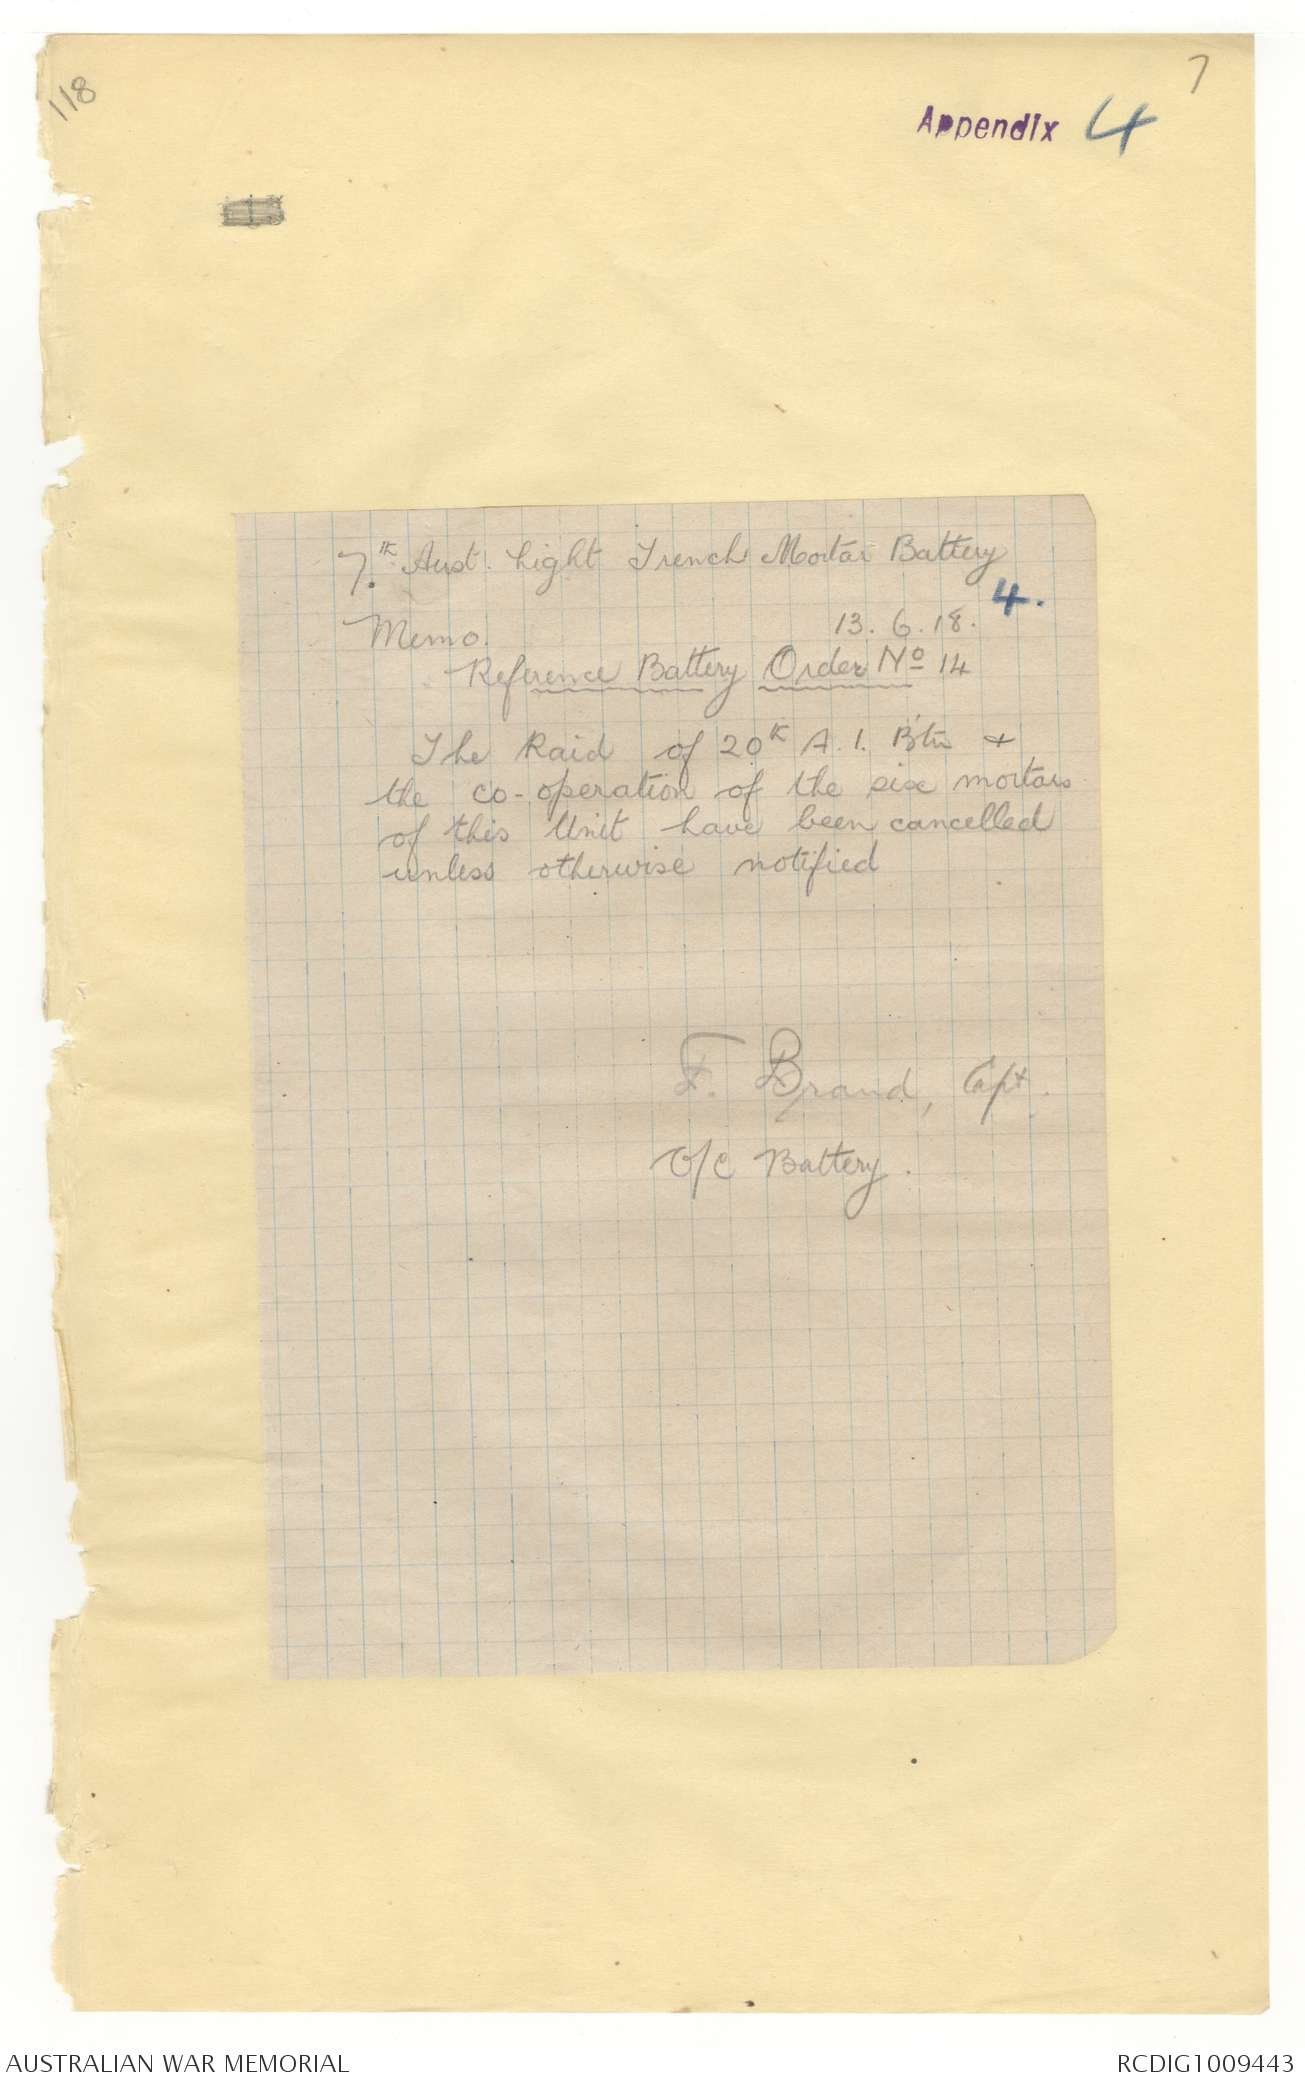 118
7
Appendix 4
7.th Aust. Light Trench Mortar Battery
4.
Memo. 13. 6. 18.
Reference Battery Order No 14
The Raid of 20th A. I. B'tn +
the co-operation of the six mortars
of this Unit have been cancelled
unless otherwise notified
F. Brand, Capt.
O/C Battery.
AUSTRALIAN WAR MEMORIAL
RCDIG1009443